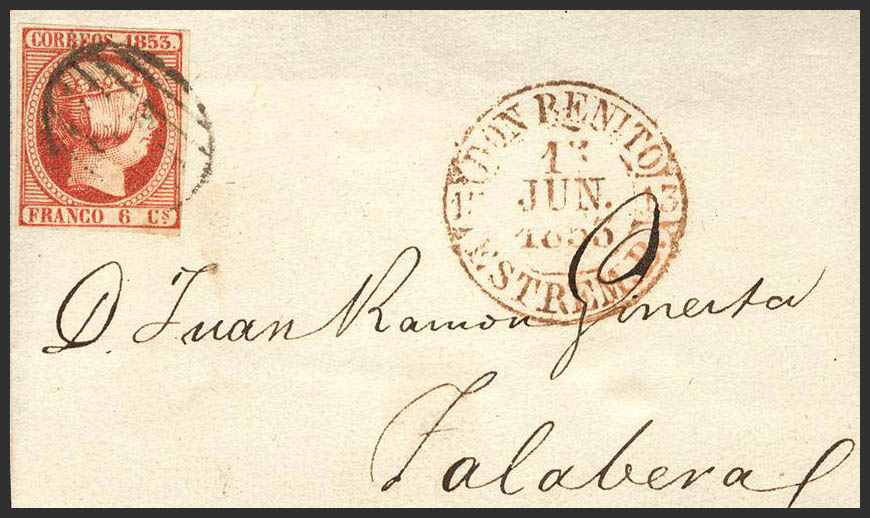 CORREOS 1853.
FRANCO 6 Cs
DON BENITO
13
JUN.
1853
13
ESTREMRA.
D. Juan Ramon Ginesta
Talabera